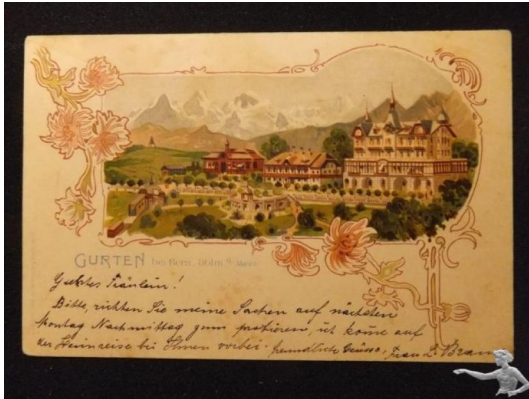 GURTEN bei Bern.
Geehrtes Fräulein!
Bitte, richten Sie meine Sachen auf nächsten
Montag Nachmittag zum probieren, ich komme auf
der Heimreise bei Ihnen vorbei. freundliche Grüsse, Frau